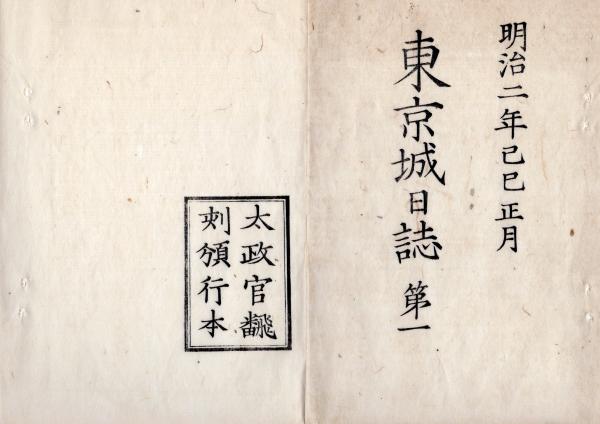 明治二年己巳正月
東京城日誌 第一
太政官飜
刻頒行本